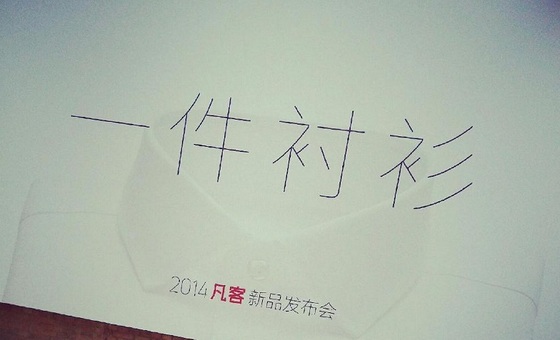 一件衬衫
2014 凡客 新品发布会